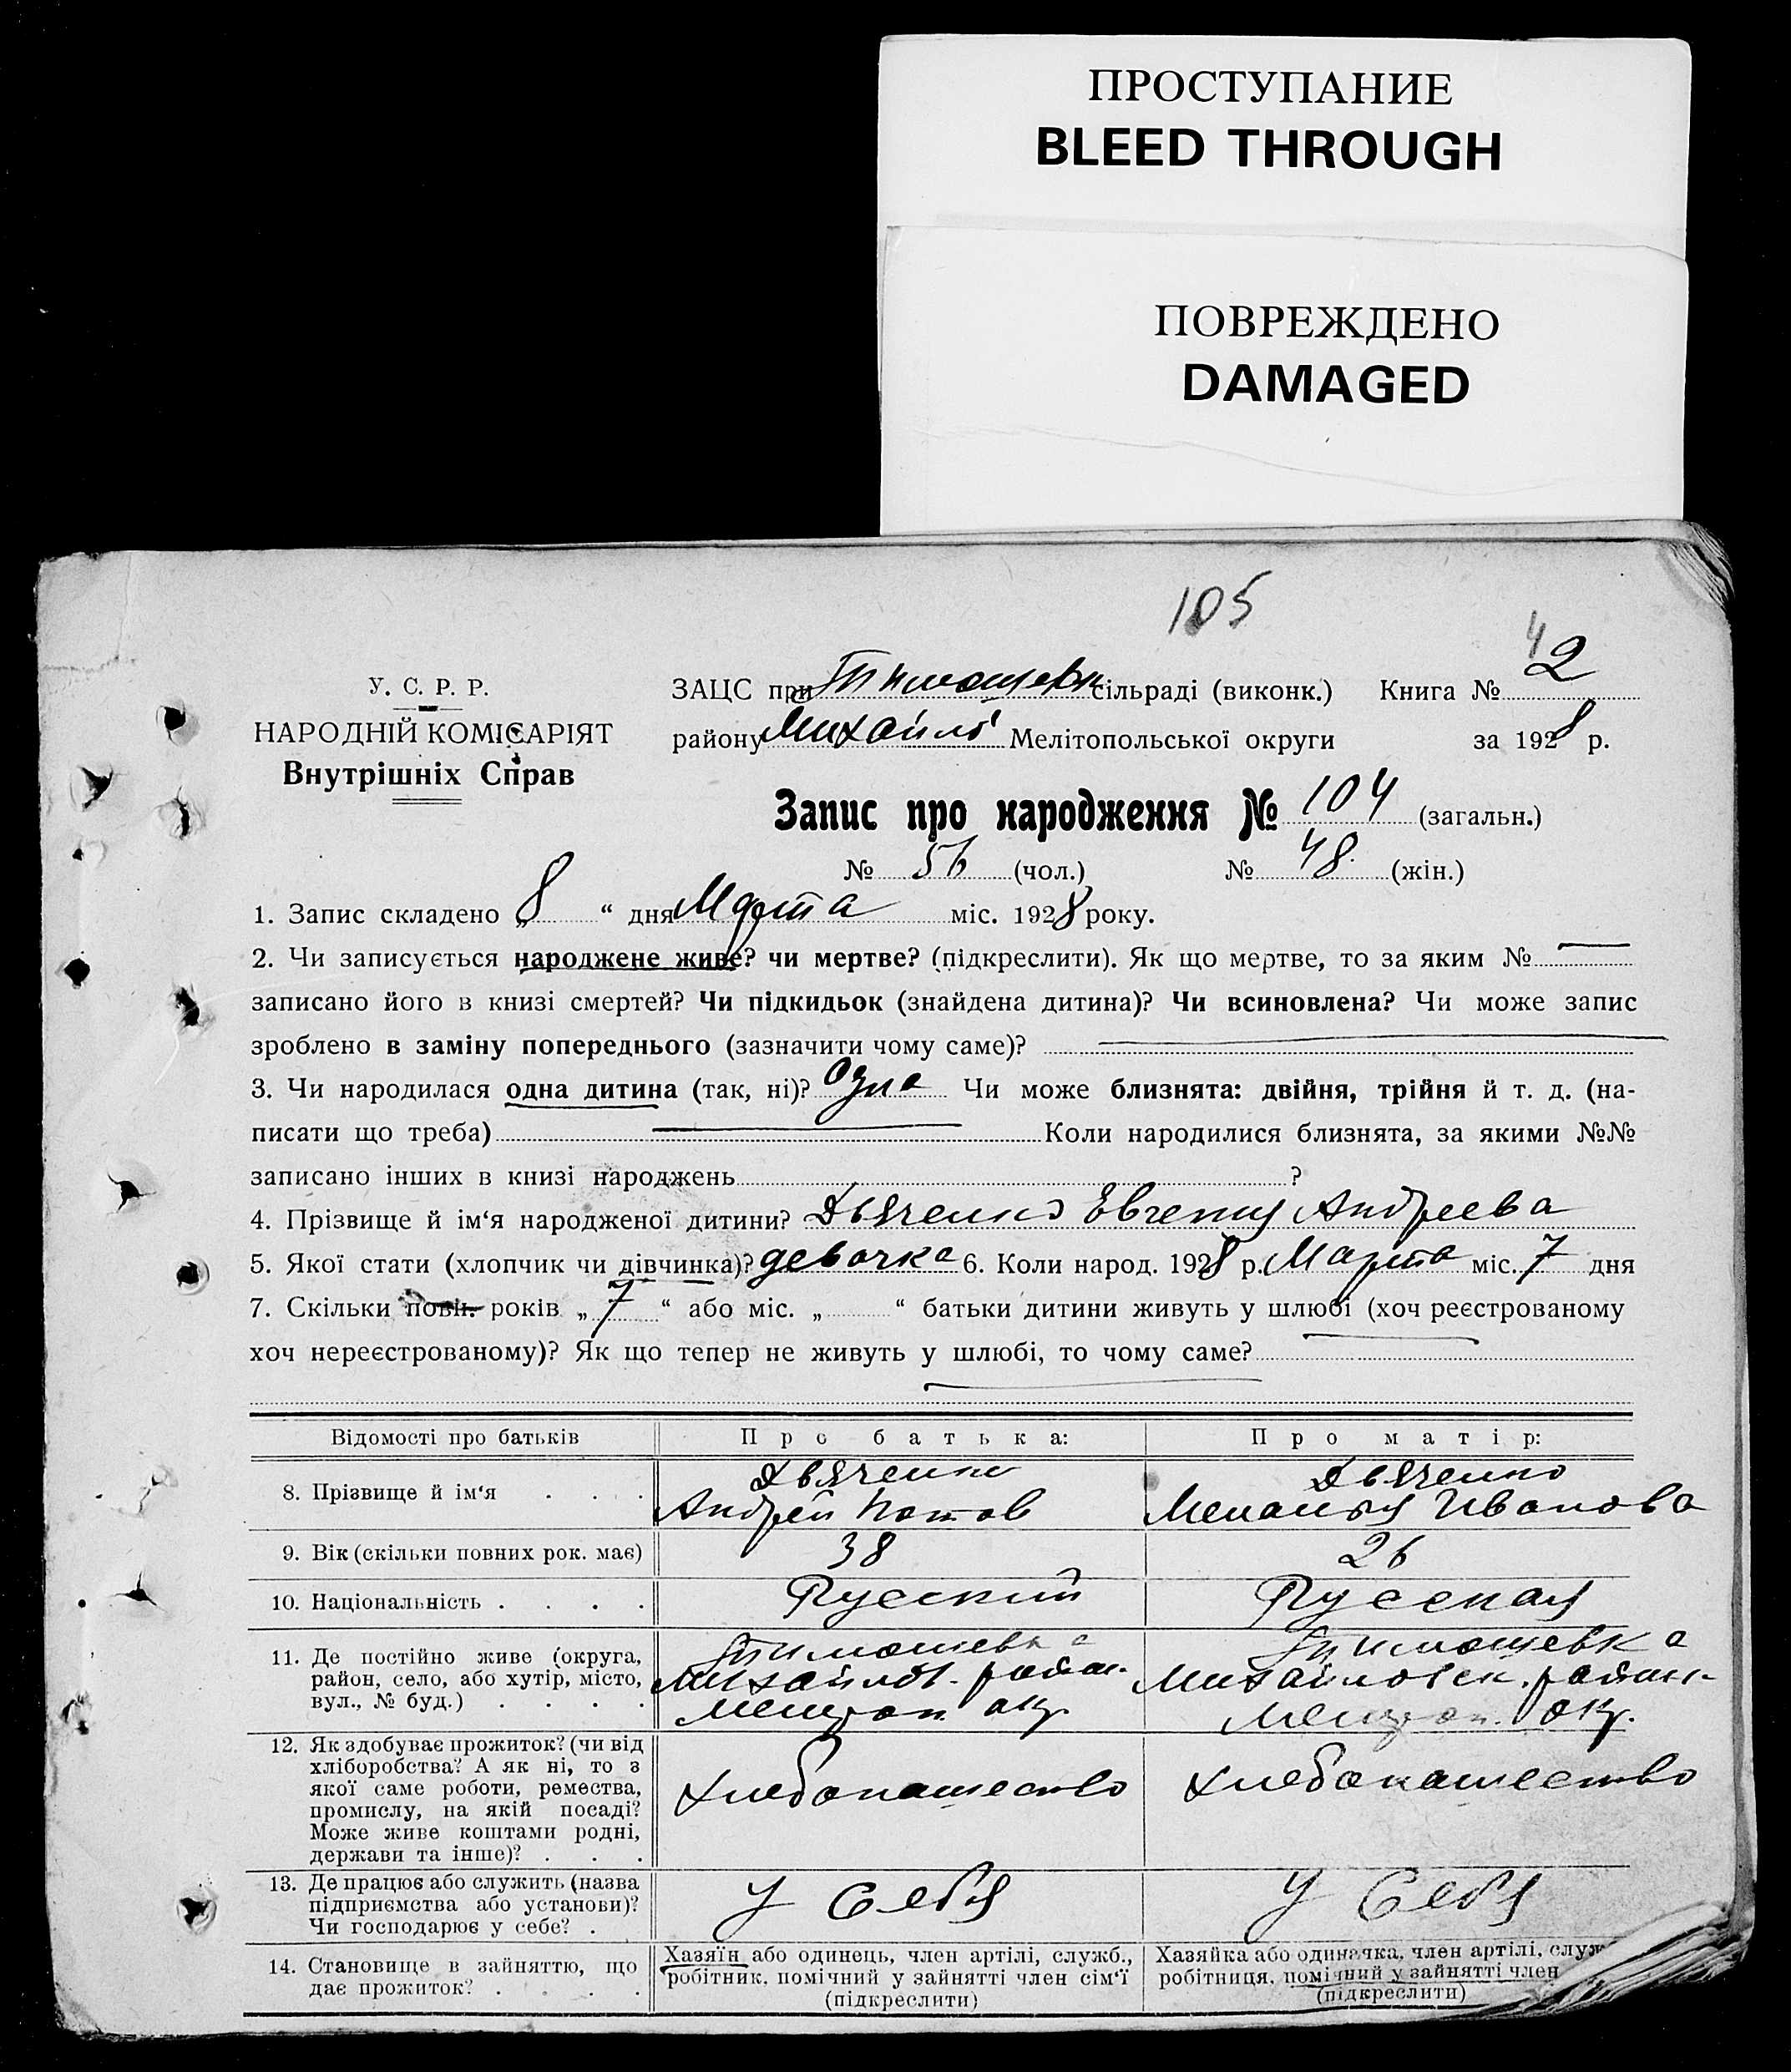 ПРОСТУПАНИЕ
BLEED THROUGH
ПОВРЕЖДЕНО
DAMAGED
105
42
У. С. Р. Р.
НАРОДНІЙ КОМІСАРІЯТ
Внутрішніх Справ
ЗАЦС при Тимошевк сільраді (виконк.) Книга № 2
району Михайлов Мелітопольської округи за 1928 р.
Запис про народження № 104 (загальн.)
№ 56 (чол.) № 48 (жін.)
1. Запис складено „8“ дня Марта міс. 1928 року.
2. Чи записується народжене живе? чи мертве? (підкреслити). Як що мертве, то за яким № —
записано його в книзі смертей? Чи підкидьок (знайдена дитина)? Чи всиновлена? Чи може запис
зроблено в заміну попереднього (зазначити чому саме)? —
3. Чи народилася одна дитина (так, ні)? Одна Чи може близнята: двійня, трійня й т. д. (на-
писати що треба) — Коли народилися близнята, за якими №№
записано інших в книзі народжень ?
4. Прізвище й ім‘я народженої дитини? Дьяченко Евгения Андреева
5. Якої стати (хлопчик чи дівчинка)? девочка 6. Коли народ. 1928 р. Марта міс. 7 дня
7. Скільки повн. років „7“ або міс. „ “ батьки дитини живуть у шлюбі (хоч реєстрованому
хоч нереєстрованому)? Як що тепер не живуть у шлюбі, то чому саме?
Відомості про батьків Про батька: Про матір:
8. Прізвище й ім‘я Дьяченко Андрей Дьяченко Меланья Иванова
9. Вік (скільки повних рок. має) 38 26
10. Національність Русский Русская
11. Де постійно живе (округа,
район, село, або хутір, місто,
вул., № буд.)
Тимошевка
Михайлов. район.
Мелитоп. окр.
Тимошевка
Михайловск. район.
Мелитоп. окр.
12. Як здобуває прожиток? (чи від
хліборобства? А як ні, то з
якої саме роботи, ремества,
промислу, на якій посаді?
Може живе коштами родні,
держави та інше)?
хлебопашество
хлебопашество
13. Де працює або служить (назва
підприємства або установи)?
Чи господарює у себе?
У Себя
У Себя
14. Становище в зайняттю, що
дає прожиток?
Хазяїн або одинець, член артілі, служб.,
робітник, помічний у зайнятті член сім‘ї
(підкреслити)
Хазяйка або одиначка, член артілі, служ
робітниця, помічний у зайнятті член
(підкреслити)